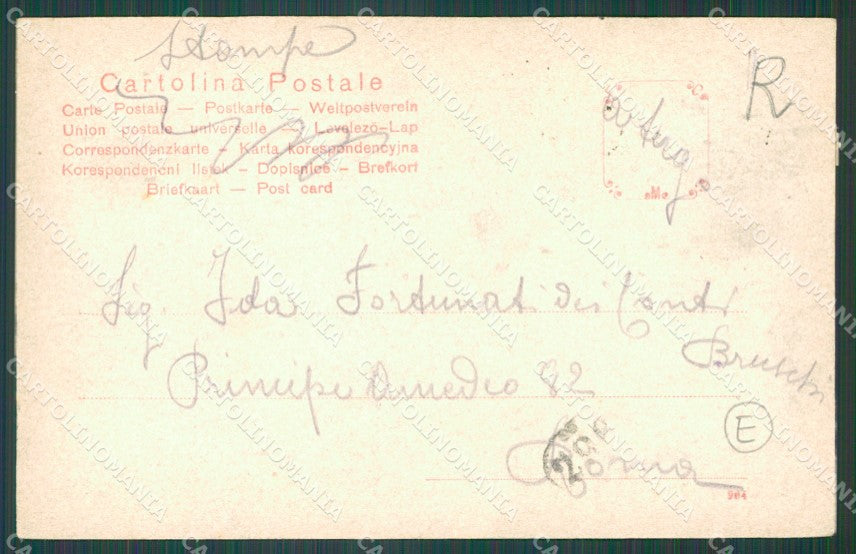 Stampe
Cartolina Postale
Carte Postale — Postkarte — Weltpostverein
Union postale universelle — Levelező-Lap
Correspondenzkarte — Karta korespondencyjna
Korespondencni listek — Dopisnice — Brefkort
Briefkaart — Post card
R
a terg
M
Sig. Ida Fortunati dei Conti
Bruschi
Principe Amedeo 82
Roma
E
964
CARTOLINOMANIA